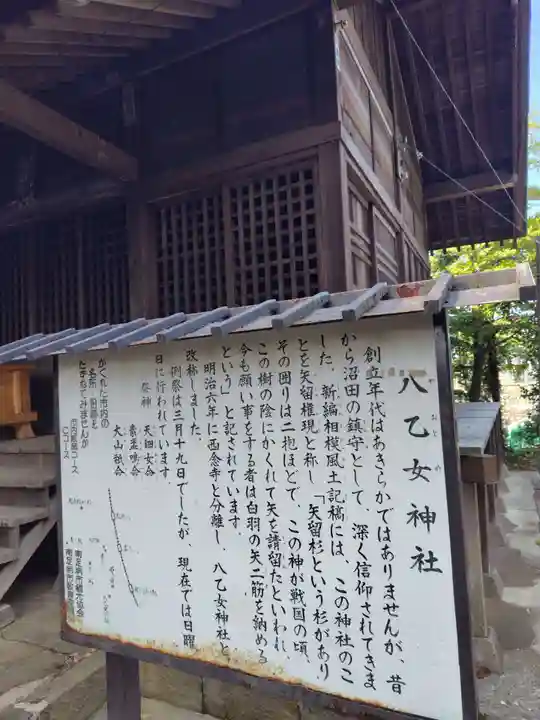 八乙女神社
やおとめ
創立年代はあきらかではありませんが、昔
から沼田の鎮守として、深く信仰されてきま
した。新編相模風土記稿には、この神社のこ
とを矢留権現と称し、「矢留杉という杉があり
その囲りは二抱ほどで、この神が戦国の頃、
この樹の陰にかくれて矢を請留たといわれ、
今も願い事をする者は白羽の矢二筋を納める
という」と記されています。
明治六年に西念寺と分離し、八乙女神社と
改称しました。
例祭は三月十九日でしたが、現在では日曜
日に行われています。
祭神
天田女命
素盞鳴命
大山祇命
かくれた市内の
名所・旧跡を
たずねてみませんか
市内散策コース
Cコース
南足柄市観光協会
南足柄市教育委員会